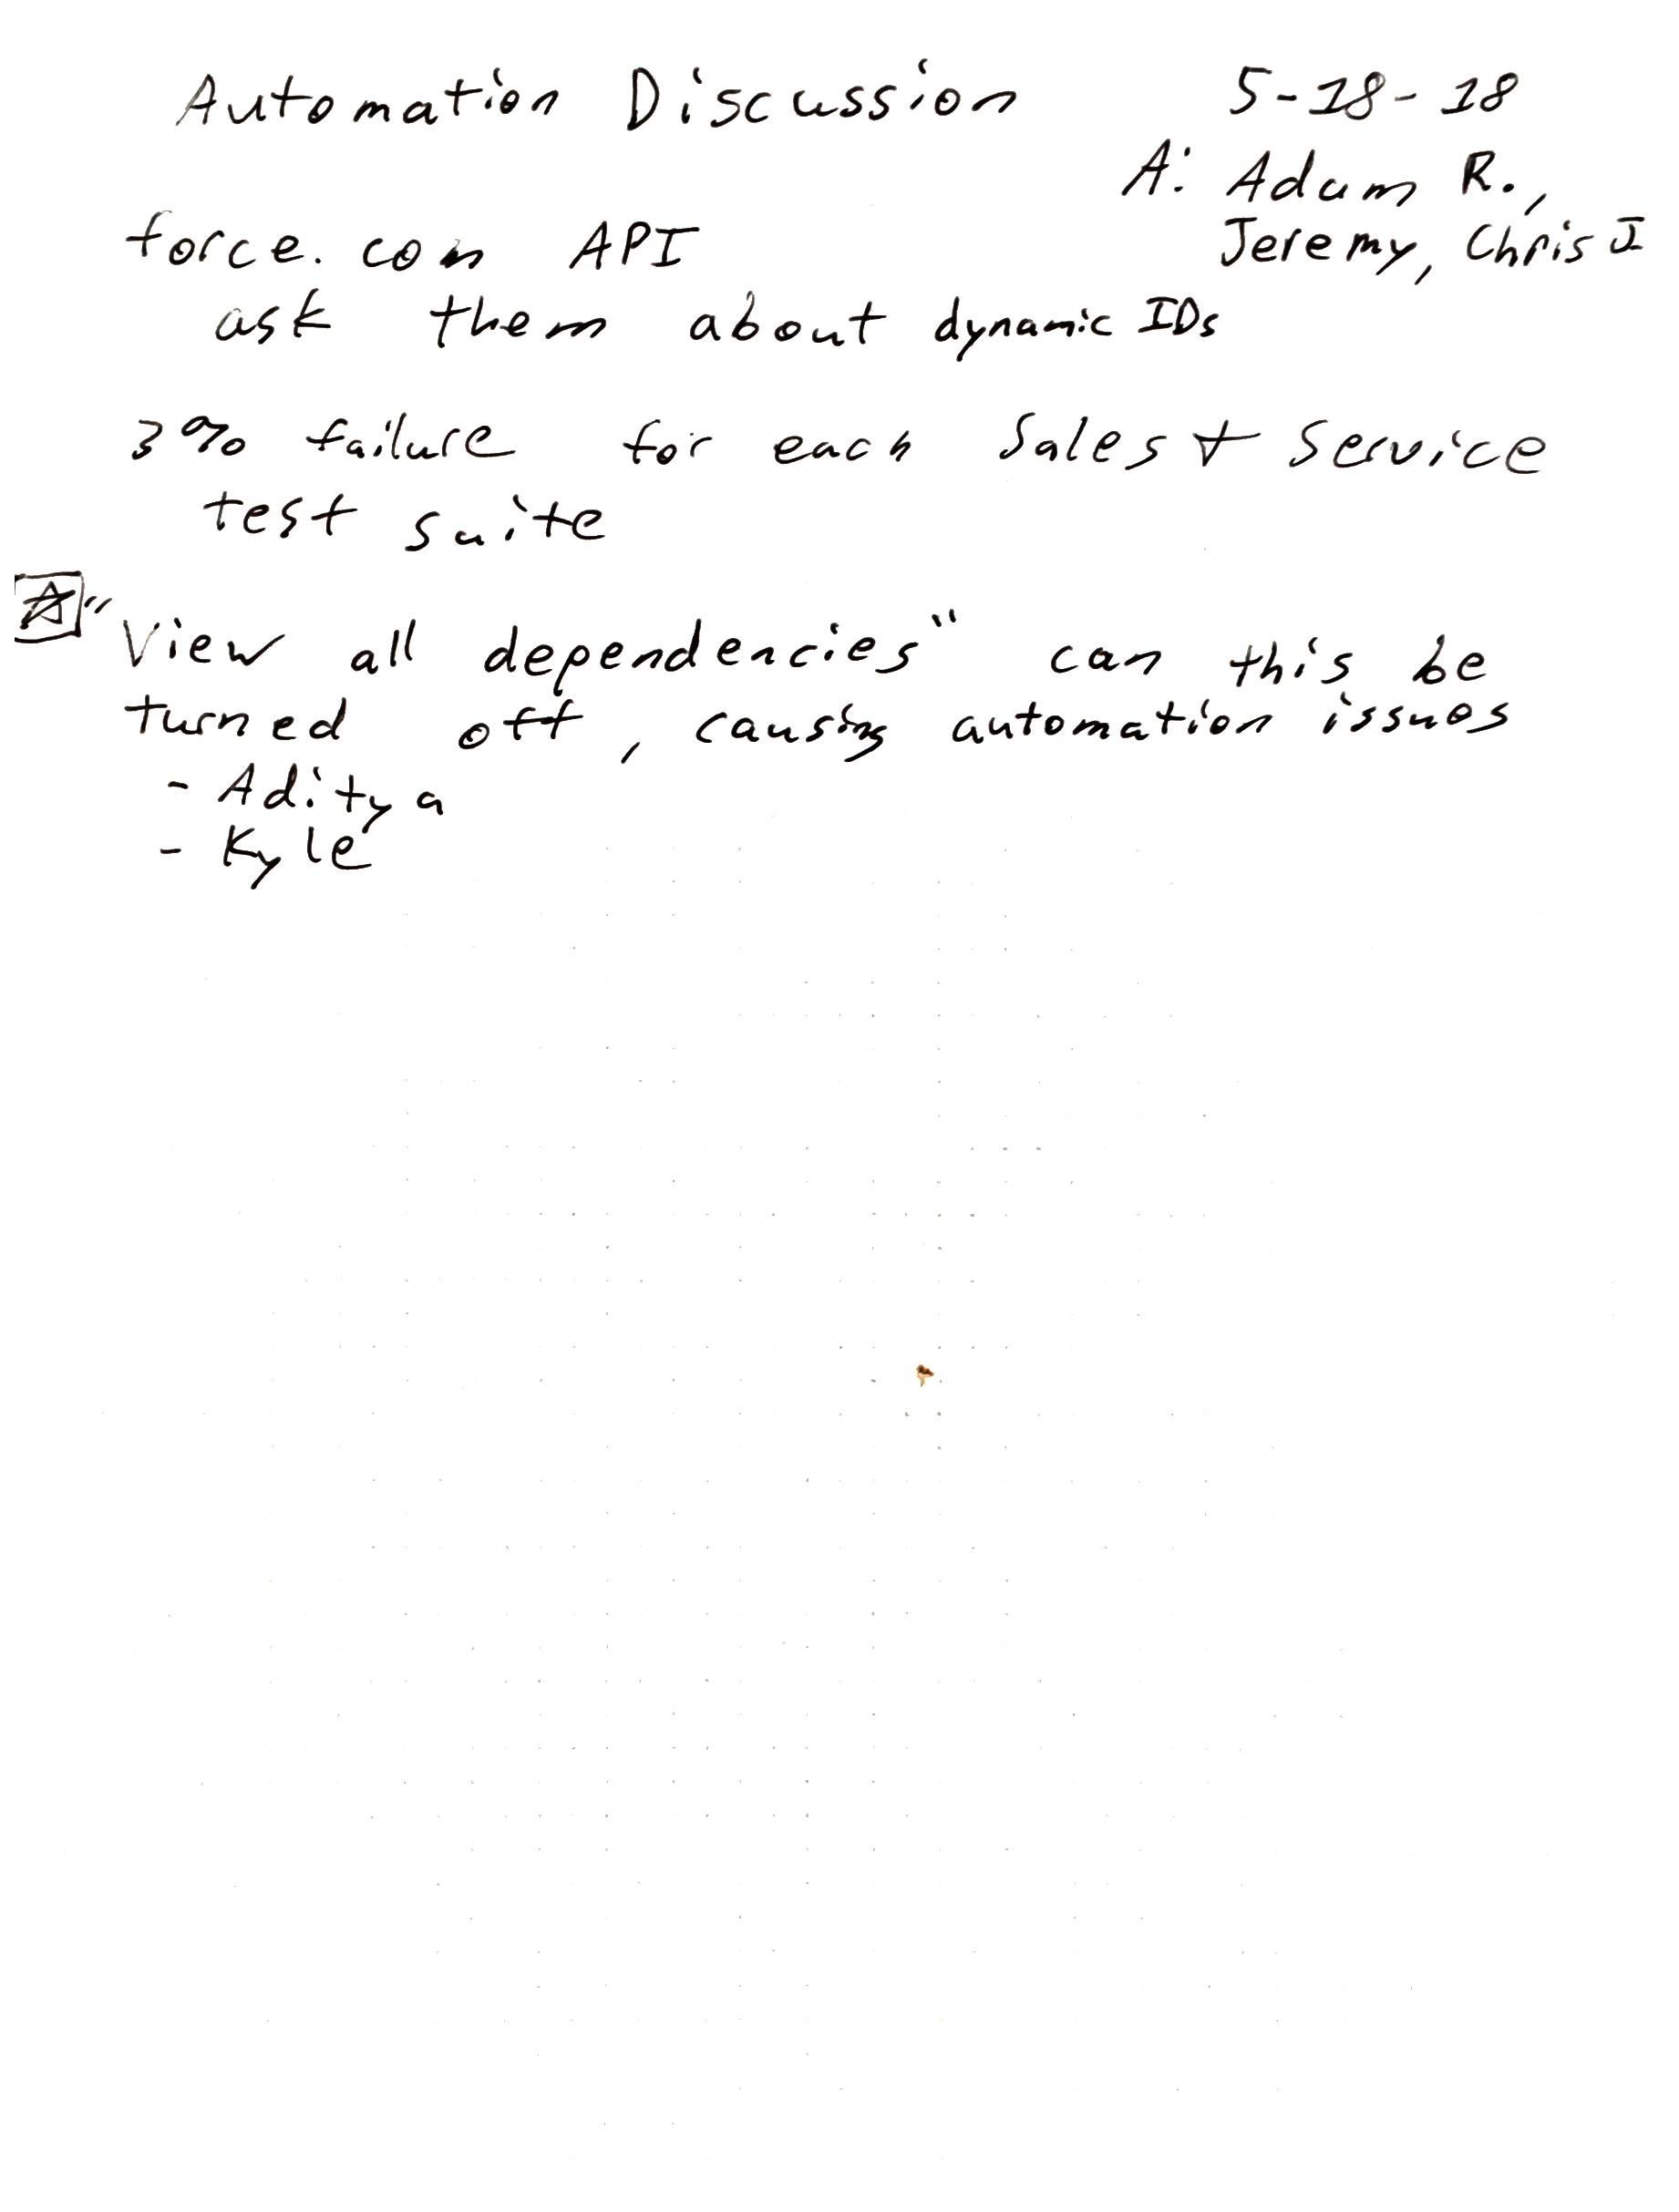 Automation Discussion 5-18-18
A: Adam R.,
Jeremy, Chris J
force.com API
ask them about dynamic IDs
3% failure for each Sales + Service
test suite
A "View all dependencies" can this be
turned off, causing automation issues
- Aditya
- Kyle